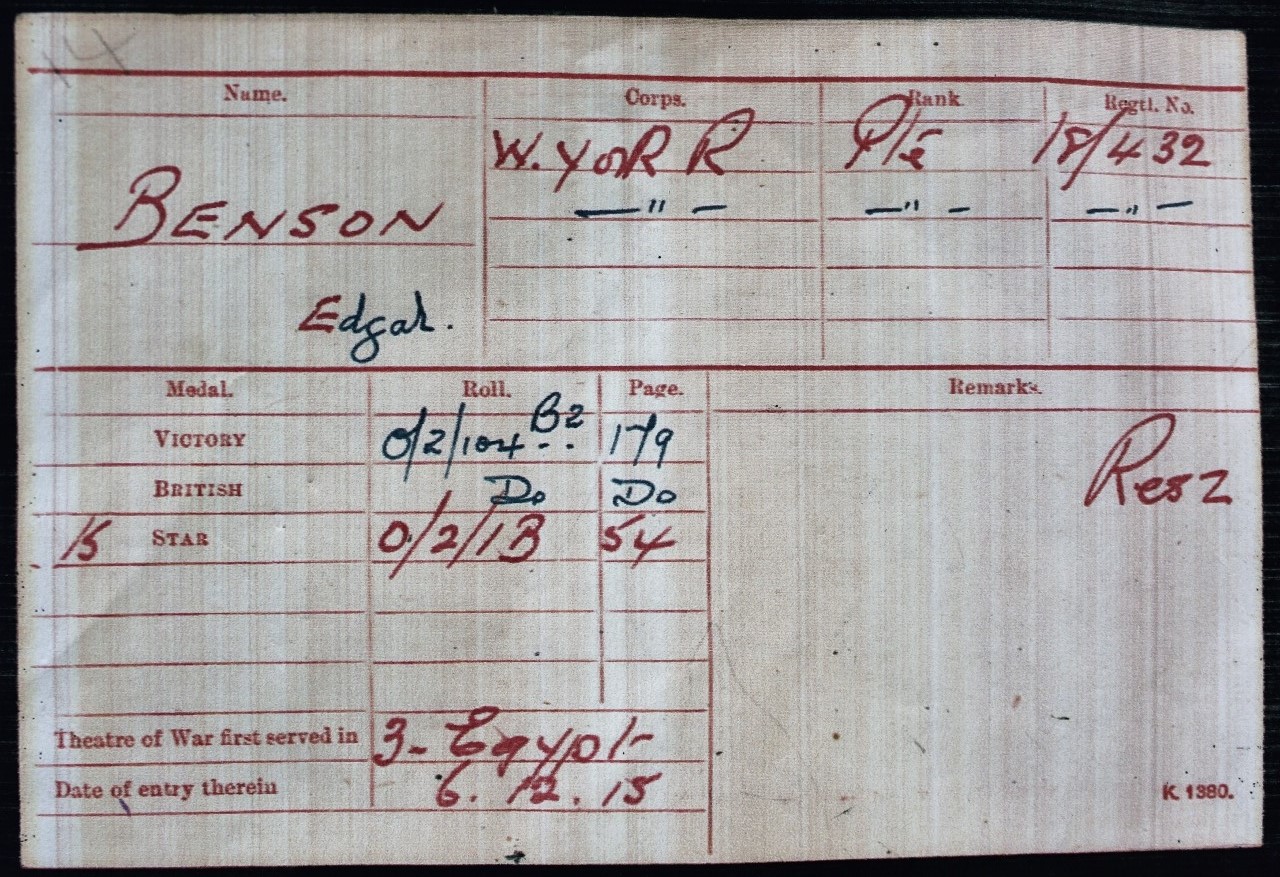 14
Name. Corps. Rank. Regtl. No.
W. York R Pte 18/432
BENSON —"— —"— —"—
Edgar.
Medal. Roll. Page. Remarks.
VICTORY O/2/104 B2 179
BRITISH Do Do Res Z
15 STAR O/2/1B 54
Theatre of War first served in 3- Egypt
Date of entry therein 6.12.15
K. 1380.